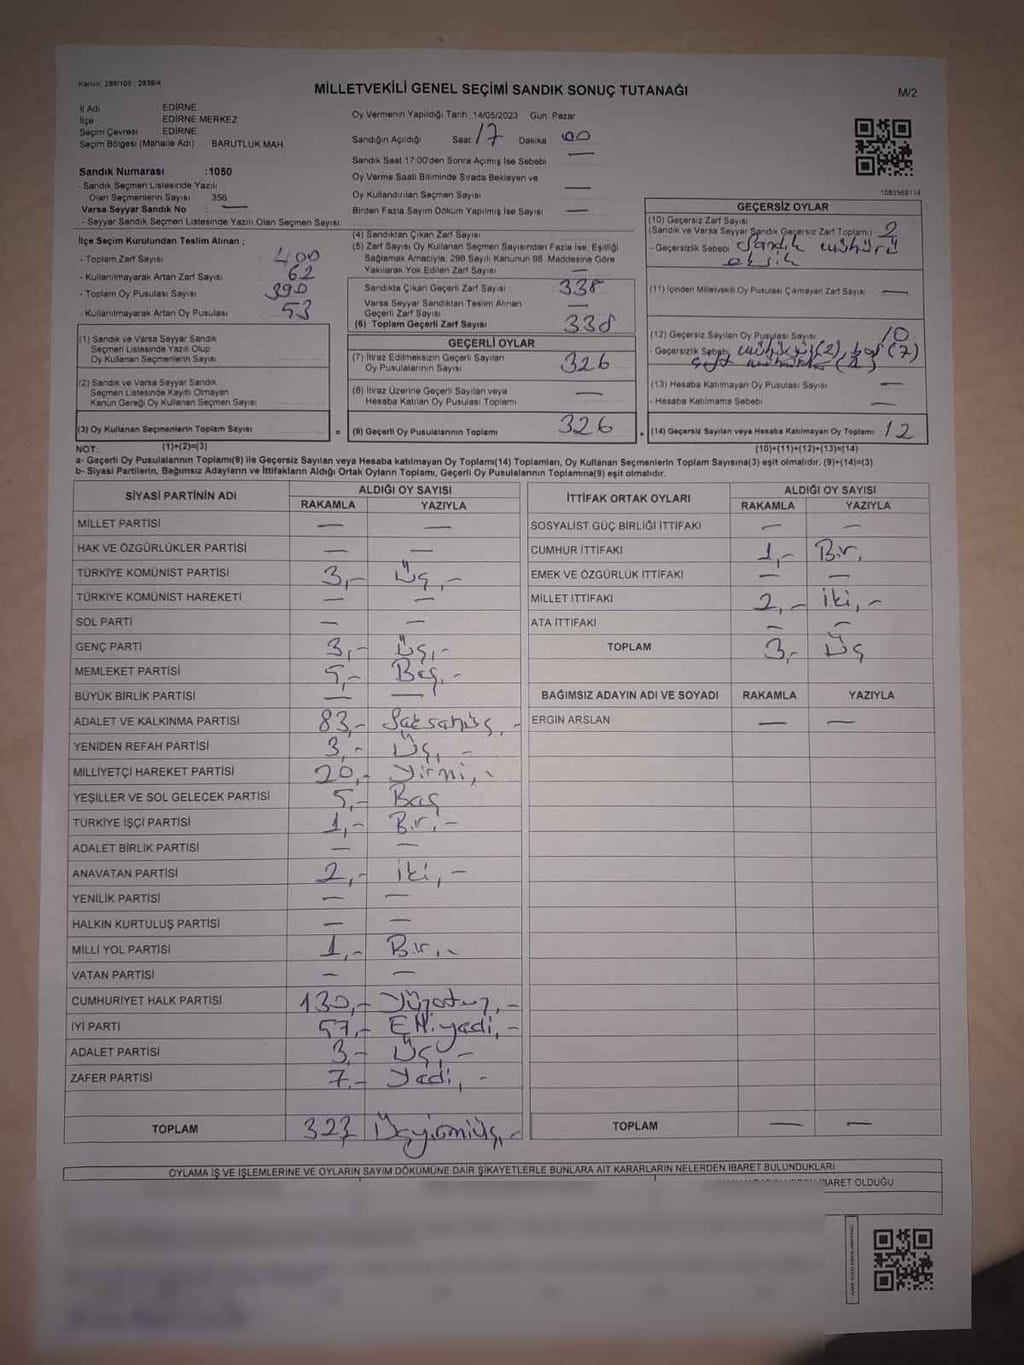 Kanun: 298/105 2839/4
MİLLETVEKİLİ GENEL SEÇİMİ SANDIK SONUÇ TUTANAĞI
M/2
İl Adı : EDİRNE
İlçe : EDİRNE MERKEZ
Seçim Çevresi : EDİRNE
Seçim Bölgesi (Mahalle Adı) BARUTLUK MAH.
Sandık Numarası :1050
- Sandık Seçmen Listesinde Yazılı
Olan Seçmenlerin Sayısı 356
Varsa Seyyar Sandık No : —
- Seyyar Sandık Seçmen Listesinde Yazılı Olan Seçmen Sayısı:
İlçe Seçim Kurulundan Teslim Alınan ;
- Toplam Zarf Sayısı : 400
- Kullanılmayarak Artan Zarf Sayısı : 62
- Toplam Oy Pusulası Sayısı : 390
- Kullanılmayarak Artan Oy Pusulası : 53
(1) Sandık ve Varsa Seyyar Sandık
Seçmen Listesinde Yazılı Olup
Oy Kullanan Seçmenlerin Sayısı
(2) Sandık ve Varsa Seyyar Sandık
Seçmen Listesinde Kayıtlı Olmayan
Kanun Gereği Oy Kullanan Seçmen Sayısı
(3) Oy Kullanan Seçmenlerin Toplam Sayısı
(1)+(2)=(3)
Oy Vermenin Yapıldığı Tarih: 14/05/2023 Gün: Pazar
Sandığın Açıldığı Saat: 17 Dakika 00
Sandık Saat 17:00'den Sonra Açılmış İse Sebebi —
Oy Verme Saati Bitiminde Sırada Bekleyen ve
Oy Kullandırılan Seçmen Sayısı —
Birden Fazla Sayım Döküm Yapılmış İse Sayısı —
(4) Sandıktan Çıkan Zarf Sayısı
(5) Zarf Sayısı Oy Kullanan Seçmen Sayısından Fazla İse, Eşitliği
Sağlamak Amacıyla, 298 Sayılı Kanunun 98. Maddesine Göre
Yakılarak Yok Edilen Zarf Sayısı —
Sandıkta Çıkan Geçerli Zarf Sayısı 338
Varsa Seyyar Sandıktan Teslim Alınan
Geçerli Zarf Sayısı —
(6) Toplam Geçerli Zarf Sayısı 338
GEÇERLİ OYLAR
(7) İtiraz Edilmeksizin Geçerli Sayılan
Oy Pusulalarının Sayısı 326
(8) İtiraz Üzerine Geçerli Sayılan veya
Hesaba Katılan Oy Pusulası Toplamı —
= (9) Geçerli Oy Pusulalarının Toplamı 326
1083568114
GEÇERSİZ OYLAR
(10) Geçersiz Zarf Sayısı
(Sandık ve Varsa Seyyar Sandık Geçersiz Zarf Toplamı) 2
- Geçersizlik Sebebi Sandık mührü
eksik
(11) İçinden Milletvekili Oy Pusulası Çıkmayan Zarf Sayısı —
(12) Geçersiz Sayılan Oy Pusulası Sayısı 10
- Geçersizlik Sebebi (2), boş (7)
çift (1)
(13) Hesaba Katılmayan Oy Pusulası Sayısı —
- Hesaba Katılmama Sebebi —
(14) Geçersiz Sayılan veya Hesaba Katılmayan Oy Toplamı 12
(10)+(11)+(12)+(13)=(14)
NOT:
a- Geçerli Oy Pusulalarının Toplamı(9) ile Geçersiz Sayılan veya Hesaba katılmayan Oy Toplamı(14) Toplamları, Oy Kullanan Seçmenlerin Toplam Sayısına(3) eşit olmalıdır. (9)+(14)=(3)
b- Siyasi Partilerin, Bağımsız Adayların ve İttifakların Aldığı Ortak Oyların Toplamı, Geçerli Oy Pusulalarının Toplamına(9) eşit olmalıdır.
SİYASİ PARTİNİN ADI ALDIĞI OY SAYISI
RAKAMLA YAZIYLA
MİLLET PARTİSİ — —
HAK VE ÖZGÜRLÜKLER PARTİSİ — —
TÜRKİYE KOMÜNİST PARTİSİ 3,- Üç,-
TÜRKİYE KOMÜNİST HAREKETİ — —
SOL PARTİ — —
GENÇ PARTİ 3,- Üç,-
MEMLEKET PARTİSİ 5,- Beş,-
BÜYÜK BİRLİK PARTİSİ — —
ADALET VE KALKINMA PARTİSİ 83,- Seksenüç,-
YENİDEN REFAH PARTİSİ 3,- Üç,-
MİLLİYETÇİ HAREKET PARTİSİ 20,- Yirmi,-
YEŞİLLER VE SOL GELECEK PARTİSİ 5,- Beş
TÜRKİYE İŞÇİ PARTİSİ 1,- Bir,-
ADALET BİRLİK PARTİSİ — —
ANAVATAN PARTİSİ 2,- iki,-
YENİLİK PARTİSİ — —
HALKIN KURTULUŞ PARTİSİ — —
MİLLİ YOL PARTİSİ 1,- Bir,-
VATAN PARTİSİ — —
CUMHURİYET HALK PARTİSİ 130,- Yüzotuz,-
İYİ PARTİ 57,- Elliyedi,-
ADALET PARTİSİ 3,- Üç,-
ZAFER PARTİSİ 7,- Yedi,-
TOPLAM 323 Üçyüzyirmiüç,-
İTTİFAK ORTAK OYLARI ALDIĞI OY SAYISI
RAKAMLA YAZIYLA
SOSYALİST GÜÇ BİRLİĞİ İTTİFAKI — —
CUMHUR İTTİFAKI 1,- Bir,
EMEK VE ÖZGÜRLÜK İTTİFAKI — —
MİLLET İTTİFAKI 2,- iki,-
ATA İTTİFAKI — —
TOPLAM 3,- Üç
BAĞIMSIZ ADAYIN ADI VE SOYADI RAKAMLA YAZIYLA
ERGİN ARSLAN — —
TOPLAM — —
OYLAMA İŞ VE İŞLEMLERİNE VE OYLARIN SAYIM DÖKÜMÜNE DAİR ŞİKAYETLERLE BUNLARA AİT KARARLARIN NELERDEN İBARET BULUNDUKLARI
İBARET OLDUĞU